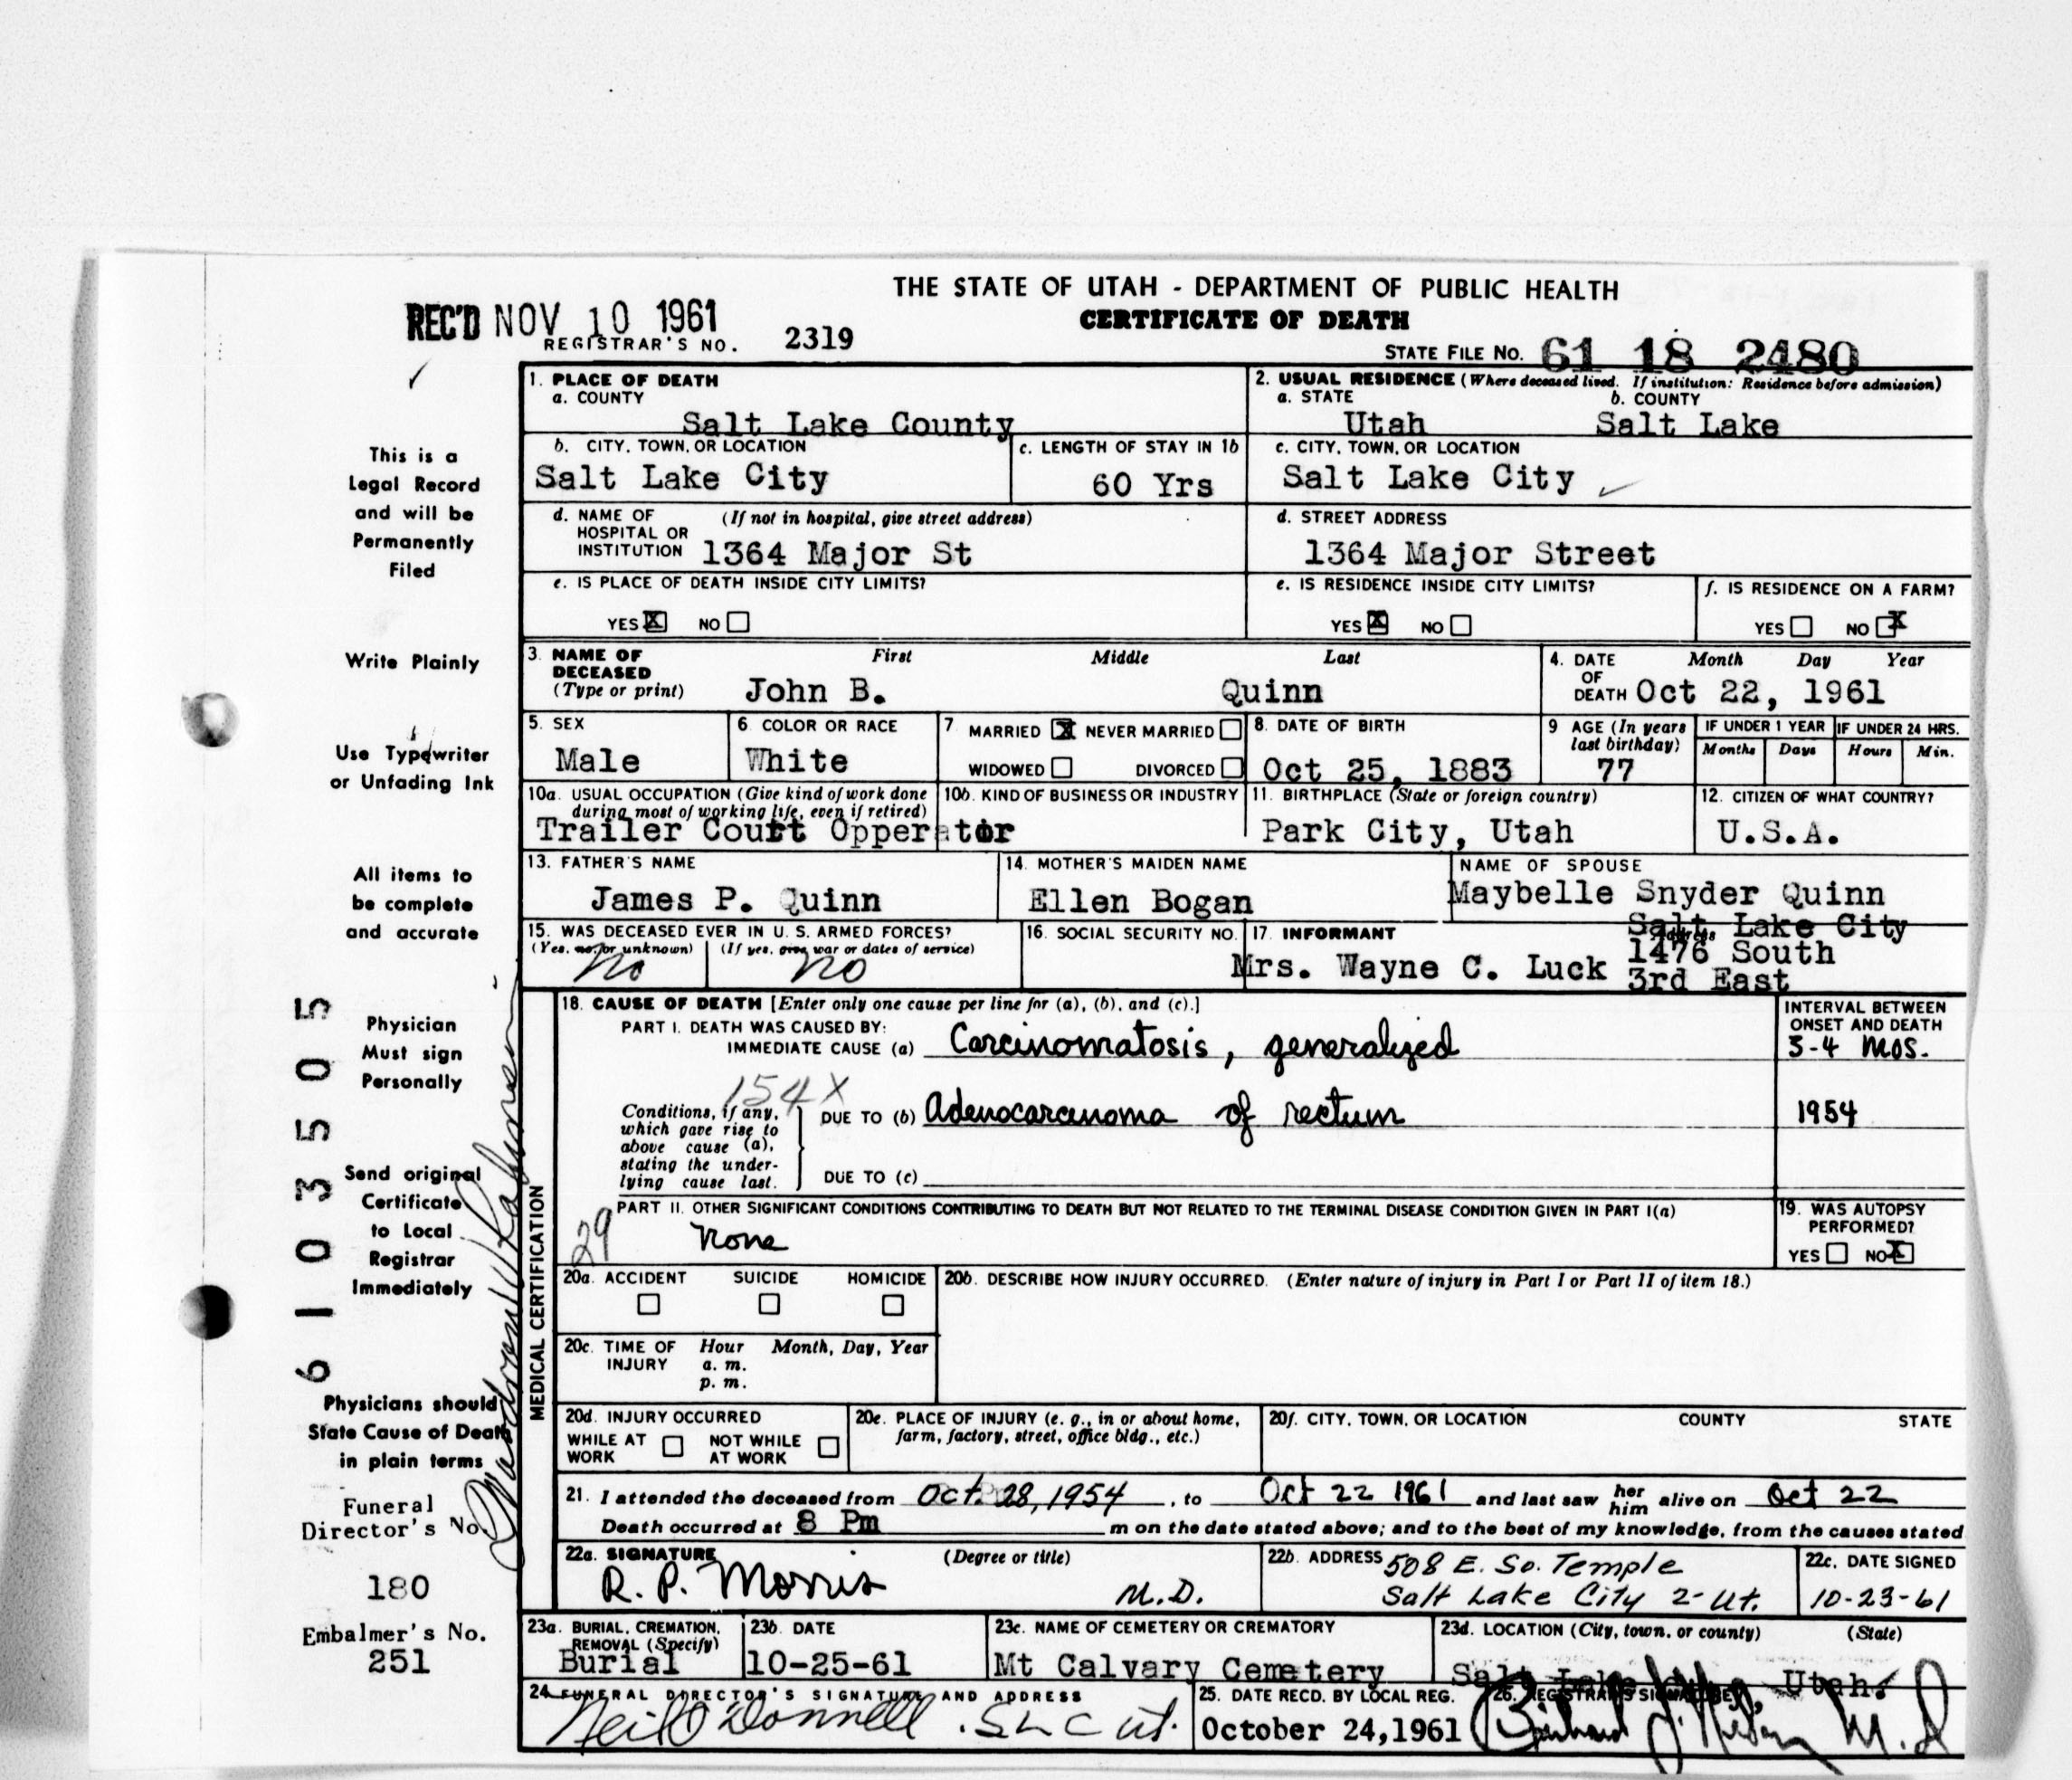 THE STATE OF UTAH - DEPARTMENT OF PUBLIC HEALTH
REC'D NOV 10 1961
CERTIFICATE OF DEATH
REGISTRAR'S NO. 2319
STATE FILE NO. 61 18 2480
1. PLACE OF DEATH
a. COUNTY
Salt Lake County
2. USUAL RESIDENCE (Where deceased lived. If institution: Residence before admission)
a. STATE b. COUNTY
Utah Salt Lake
b. CITY, TOWN, OR LOCATION
Salt Lake City
c. LENGTH OF STAY IN 1b
60 Yrs
c. CITY, TOWN, OR LOCATION
Salt Lake City
d. NAME OF (If not in hospital, give street address)
HOSPITAL OR
INSTITUTION 1364 Major St
d. STREET ADDRESS
1364 Major Street
e. IS PLACE OF DEATH INSIDE CITY LIMITS?
YES X NO
e. IS RESIDENCE INSIDE CITY LIMITS?
YES X NO
f. IS RESIDENCE ON A FARM?
YES NO X
3. NAME OF First Middle Last
DECEASED
(Type or print) John B. Quinn
4. DATE Month Day Year
OF
DEATH Oct 22, 1961
5. SEX
Male
6. COLOR OR RACE
White
7 MARRIED X NEVER MARRIED
WIDOWED DIVORCED
8. DATE OF BIRTH
Oct 25, 1883
9 AGE (In years
last birthday)
77
IF UNDER 1 YEAR
Months Days
IF UNDER 24 HRS.
Hours Min.
10a. USUAL OCCUPATION (Give kind of work done
during most of working life, even if retired)
Trailer Court Opperator
10b. KIND OF BUSINESS OR INDUSTRY
11. BIRTHPLACE (State or foreign country)
Park City, Utah
12. CITIZEN OF WHAT COUNTRY?
U.S.A.
13. FATHER'S NAME
James P. Quinn
14. MOTHER'S MAIDEN NAME
Ellen Bogan
NAME OF SPOUSE
Maybelle Snyder Quinn
15. WAS DECEASED EVER IN U. S. ARMED FORCES?
(Yes, no, or unknown) (If yes, give war or dates of service)
No no
16. SOCIAL SECURITY NO.
17 INFORMANT Address
Mrs. Wayne C. Luck
Salt Lake City
1476 South
3rd East
18. CAUSE OF DEATH [Enter only one cause per line for (a), (b), and (c).]
PART I. DEATH WAS CAUSED BY:
IMMEDIATE CAUSE (a) Carcinomatosis, generalized
INTERVAL BETWEEN
ONSET AND DEATH
3-4 mos.
154X
Conditions, if any,
which gave rise to
above cause (a),
stating the under-
lying cause last.
DUE TO (b) Adenocarcinoma of rectum
1954
DUE TO (c)
PART II. OTHER SIGNIFICANT CONDITIONS CONTRIBUTING TO DEATH BUT NOT RELATED TO THE TERMINAL DISEASE CONDITION GIVEN IN PART I(a)
29 None
19. WAS AUTOPSY
PERFORMED?
YES NO X
20a. ACCIDENT SUICIDE HOMICIDE
20b. DESCRIBE HOW INJURY OCCURRED. (Enter nature of injury in Part I or Part II of item 18.)
20c. TIME OF Hour Month, Day, Year
INJURY a. m.
p. m.
20d. INJURY OCCURRED
WHILE AT NOT WHILE
WORK AT WORK
20e. PLACE OF INJURY (e. g., in or about home,
farm, factory, street, office bldg., etc.)
20f. CITY, TOWN, OR LOCATION COUNTY STATE
21. I attended the deceased from Oct. 28, 1954, to Oct 22 1961 and last saw her him alive on Oct 22
Death occurred at 8 Pm m on the date stated above; and to the best of my knowledge, from the causes stated
22a. SIGNATURE (Degree or title)
R. P. Morris M.D.
22b. ADDRESS 508 E. So. Temple
Salt Lake City 2-Ut.
22c. DATE SIGNED
10-23-61
23a. BURIAL, CREMATION,
REMOVAL (Specify)
Burial
23b. DATE
10-25-61
23c. NAME OF CEMETERY OR CREMATORY
Mt Calvary Cemetery
23d. LOCATION (City, town, or county) (State)
Salt Lake City, Utah.
24 FUNERAL DIRECTOR'S SIGNATURE AND ADDRESS
Neil O'Donnell. SLC Ut.
25. DATE RECD. BY LOCAL REG.
October 24,1961
26. REGISTRAR'S SIGNATURE
M.D
This is a
Legal Record
and will be
Permanently
Filed
Write Plainly
Use Typewriter
or Unfading Ink
All items to
be complete
and accurate
Physician
Must sign
Personally
Send original
Certificate
to Local
Registrar
Immediately
Physicians should
State Cause of Death
in plain terms
Funeral
Director's No.
180
Embalmer's No.
251
61035505
MEDICAL CERTIFICATION